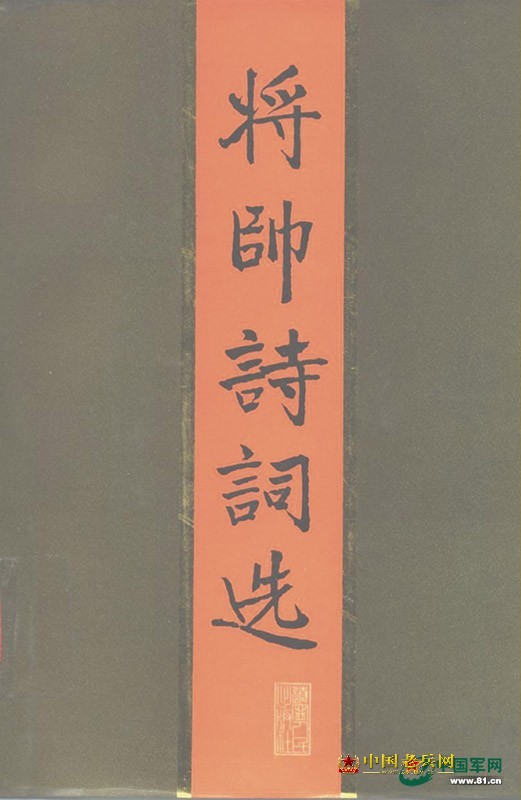 将帥詩詞选
中国老兵网
中国军网
www.81.cn